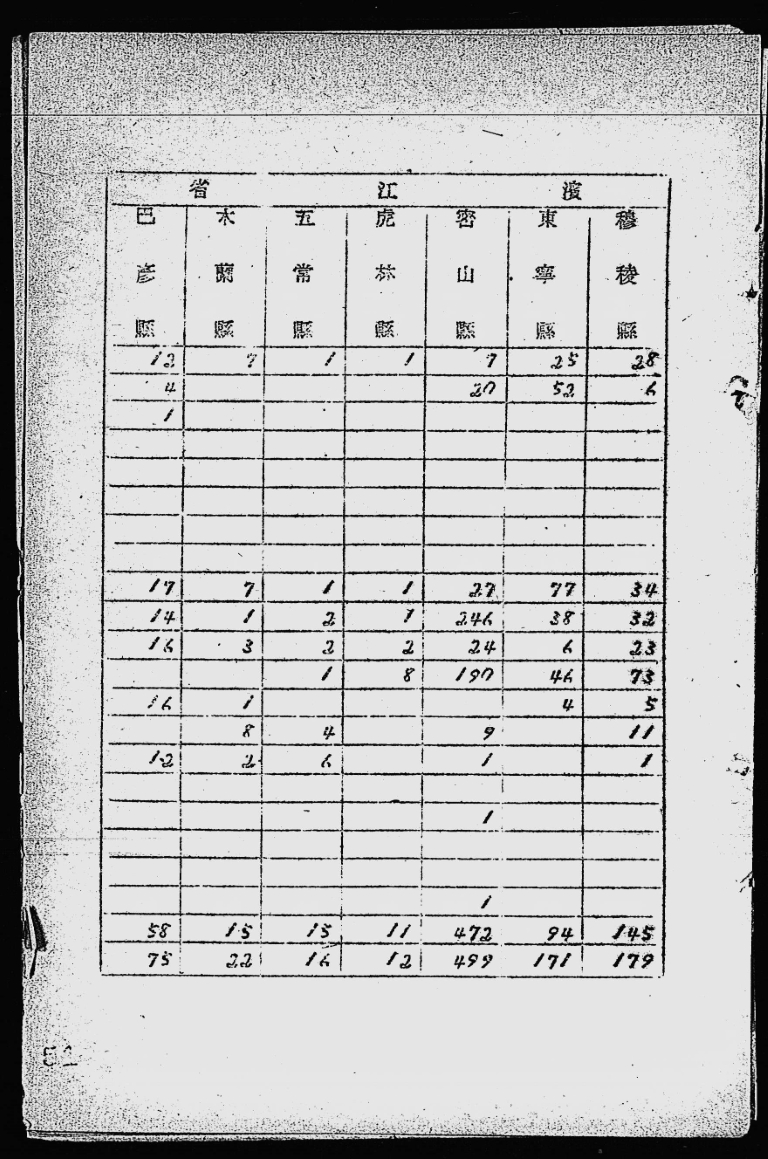 濱江省
穆稜縣 東寧縣 密山縣 虎林縣 五常縣 木蘭縣 巴彥縣
28 25 7 1 1 7 12
6 52 20 4
1
34 77 27 1 1 7 17
32 38 246 1 2 1 14
23 6 24 2 2 3 16
73 46 190 8 1
5 4 1 16
11 9 4 8
1 1 6 2 12
1
1
145 94 472 11 15 15 58
179 171 499 12 16 22 75